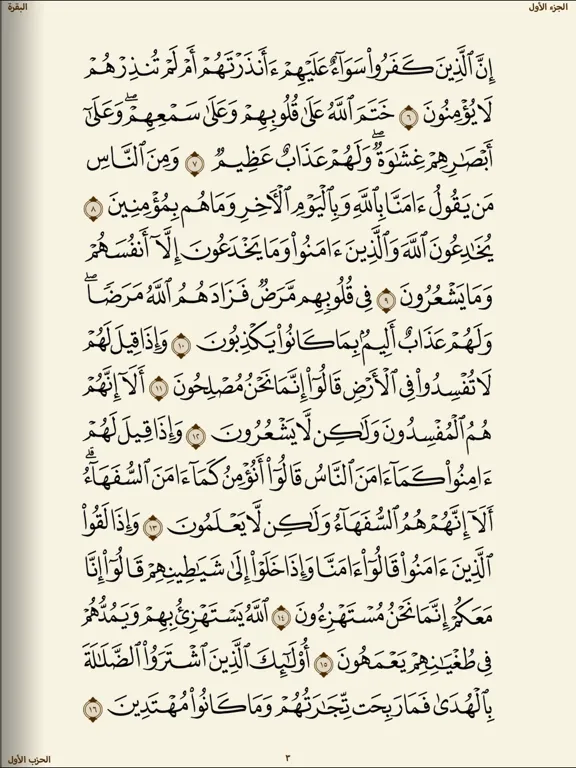 الجزء الأول
البقرة
إِنَّ ٱلَّذِينَ كَفَرُوا۟ سَوَآءٌ عَلَيْهِمْ ءَأَنذَرْتَهُمْ أَمْ لَمْ تُنذِرْهُمْ
لَا يُؤْمِنُونَ ٦ خَتَمَ ٱللَّهُ عَلَىٰ قُلُوبِهِمْ وَعَلَىٰ سَمْعِهِمْ ۖ وَعَلَىٰٓ
أَبْصَـٰرِهِمْ غِشَـٰوَةٌ ۖ وَلَهُمْ عَذَابٌ عَظِيمٌ ٧ وَمِنَ ٱلنَّاسِ
مَن يَقُولُ ءَامَنَّا بِٱللَّهِ وَبِٱلْيَوْمِ ٱلْـَٔاخِرِ وَمَا هُم بِمُؤْمِنِينَ ٨
يُخَـٰدِعُونَ ٱللَّهَ وَٱلَّذِينَ ءَامَنُوا۟ وَمَا يَخْدَعُونَ إِلَّآ أَنفُسَهُمْ
وَمَا يَشْعُرُونَ ٩ فِى قُلُوبِهِم مَّرَضٌ فَزَادَهُمُ ٱللَّهُ مَرَضًا ۖ
وَلَهُمْ عَذَابٌ أَلِيمٌۢ بِمَا كَانُوا۟ يَكْذِبُونَ ١٠ وَإِذَا قِيلَ لَهُمْ
لَا تُفْسِدُوا۟ فِى ٱلْأَرْضِ قَالُوٓا۟ إِنَّمَا نَحْنُ مُصْلِحُونَ ١١ أَلَآ إِنَّهُمْ
هُمُ ٱلْمُفْسِدُونَ وَلَـٰكِن لَّا يَشْعُرُونَ ١٢ وَإِذَا قِيلَ لَهُمْ
ءَامِنُوا۟ كَمَآ ءَامَنَ ٱلنَّاسُ قَالُوٓا۟ أَنُؤْمِنُ كَمَآ ءَامَنَ ٱلسُّفَهَآءُ ۗ
أَلَآ إِنَّهُمْ هُمُ ٱلسُّفَهَآءُ وَلَـٰكِن لَّا يَعْلَمُونَ ١٣ وَإِذَا لَقُوا۟
ٱلَّذِينَ ءَامَنُوا۟ قَالُوٓا۟ ءَامَنَّا وَإِذَا خَلَوْا۟ إِلَىٰ شَيَـٰطِينِهِمْ قَالُوٓا۟ إِنَّا
مَعَكُمْ إِنَّمَا نَحْنُ مُسْتَهْزِءُونَ ١٤ ٱللَّهُ يَسْتَهْزِئُ بِهِمْ وَيَمُدُّهُمْ
فِى طُغْيَـٰنِهِمْ يَعْمَهُونَ ١٥ أُو۟لَـٰٓئِكَ ٱلَّذِينَ ٱشْتَرَوُا۟ ٱلضَّلَـٰلَةَ
بِٱلْهُدَىٰ فَمَا رَبِحَت تِّجَـٰرَتُهُمْ وَمَا كَانُوا۟ مُهْتَدِينَ ١٦
٣
الحزب الأول